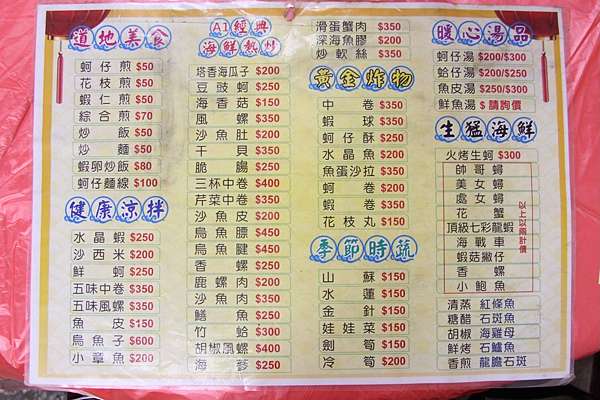 道地美食
蚵仔煎 $50
花枝煎 $50
蝦仁煎 $50
綜合煎 $70
炒飯 $50
炒麵 $50
蝦卵炒飯 $80
蚵仔麵線 $100
健康涼拌
水晶蝦 $250
沙西米 $200
鮮蚵 $250
五味中卷 $350
五味風螺 $350
魚皮 $150
烏魚子 $600
小章魚 $200
AI經典
海鮮熱炒
塔香海瓜子 $200
豆豉蚵 $250
海香菇 $150
風螺 $350
沙魚肚 $200
干貝 $350
脆腸 $250
三杯中卷 $400
芹菜中卷 $350
沙魚皮 $200
烏魚膘 $450
烏魚腱 $450
香螺 $350
鹿螺肉 $200
沙魚肉 $350
鱔魚 $250
竹蛤 $300
胡椒風螺 $400
海參 $250
滑蛋蟹肉 $350
深海魚膠 $200
炒軟絲 $350
黃金炸物
中卷 $350
蝦球 $350
蚵仔酥 $250
水晶魚 $200
魚蛋沙拉 $350
蚵卷 $200
蝦卷 $350
花枝丸 $150
季節時蔬
山蘇 $150
水蓮 $150
金針 $150
娃娃菜 $150
劍筍 $150
冷筍 $200
暖心湯品
蚵仔湯 $200/$300
蛤仔湯 $200/$300
魚皮湯 $250/$350
鮮魚湯 $請詢價
生猛海鮮
火烤生蚵 $300
帥哥蟳
美女蟳
處女蟳
花蟹
頂級七彩龍蝦
海戰車
蝦菇撇仔
香螺
小鮑魚
以上以兩計價
清蒸 紅條魚
糖醋 石斑魚
胡椒 海雞母
鮮烤 石鱸魚
香煎 龍膽石斑